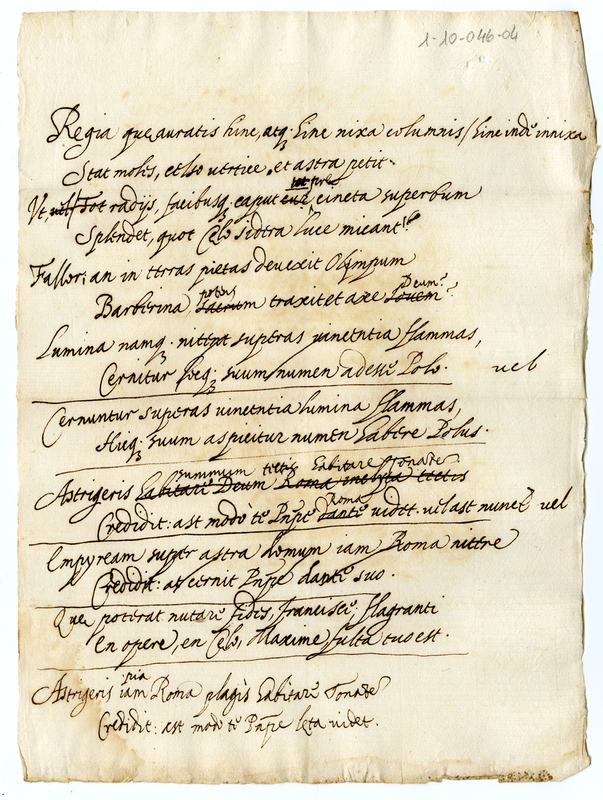 1-10-046-04
Regia quę auratis hinc, atq; hinc nixa columnis / hinc inde innixa
Stat molis, celso vertice, et astra petit:
Vt, Tot radijs, facibusq; caput cincta superbum
Splendet, quot Cęlo sidera luce micant?
Fallor: an in terras pietas deuexit Olimpum
Deum?
Barberina potens traxit et axe Iouem?
Lumina namq; supera vincentia flammas,
Cernitur suum numen adesse Polo. vel
Cernuntur superas vincentia lumina flammas,
Hicq; suum aspicitur numen habere Polus.
summum tectis habitare Tonante
Astrigeris habitare Deum Roma tectis
Roma
Credidit: ast modo te Prīpe dante videt. vel ast nunc vel
Empyream super astra domum iam Roma nitere
Credidit: at cernit Prīpe dante suo.
Quę poterat nutare fides, Francisce, flagranti
En opere, en Cęlo, Maxime fulta tuo est.
pia
Astrigeris iam Roma plagis habitare Tonante
Credidit: ast modo te Prīpe lęta videt.